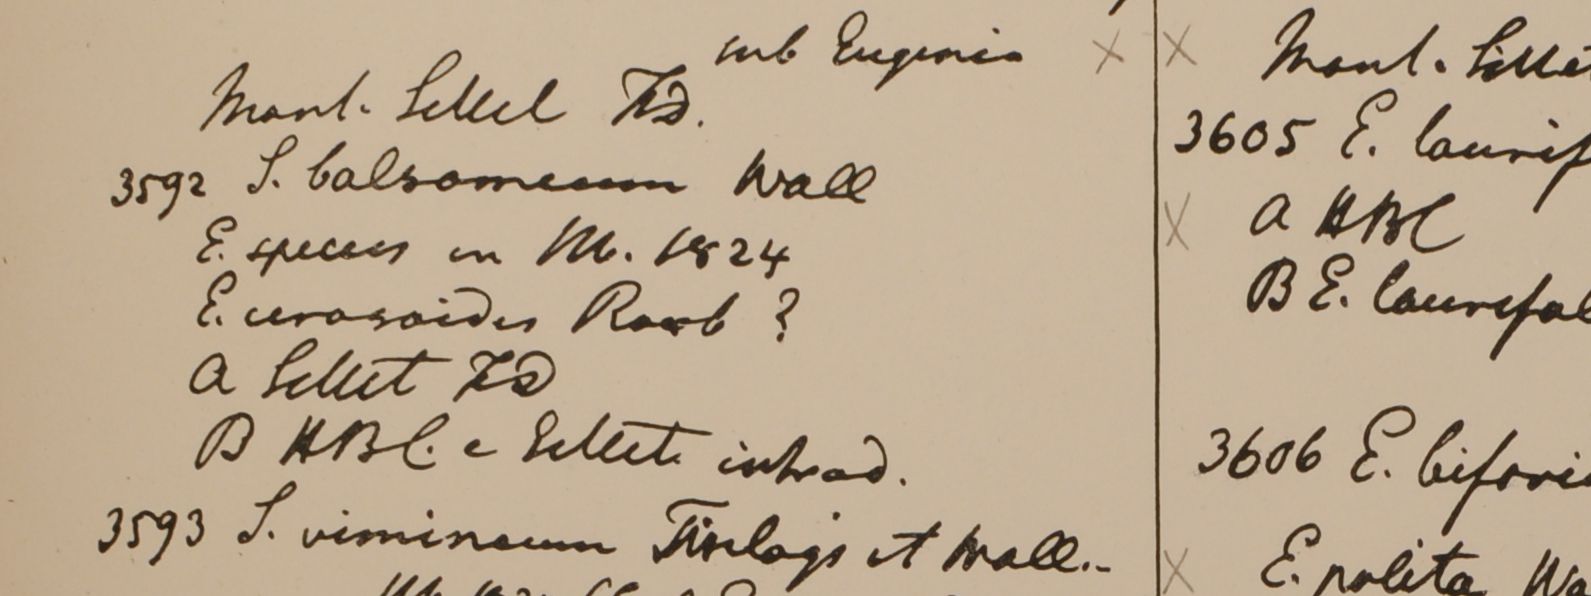 sub Eugenia
Mont. Sillet FD.
3592 S. balsameum Wall
E. species in M. 1824
E. cerasoides Roxb ?
a Sillet FD
B HBC. e Sillet introd.
3593 S. vimineum Finlays et Wall..
Mont. Sillet
3605 E. laurif
a HBC
B E. laurifol
3606 E. bifari
E. polita Wa